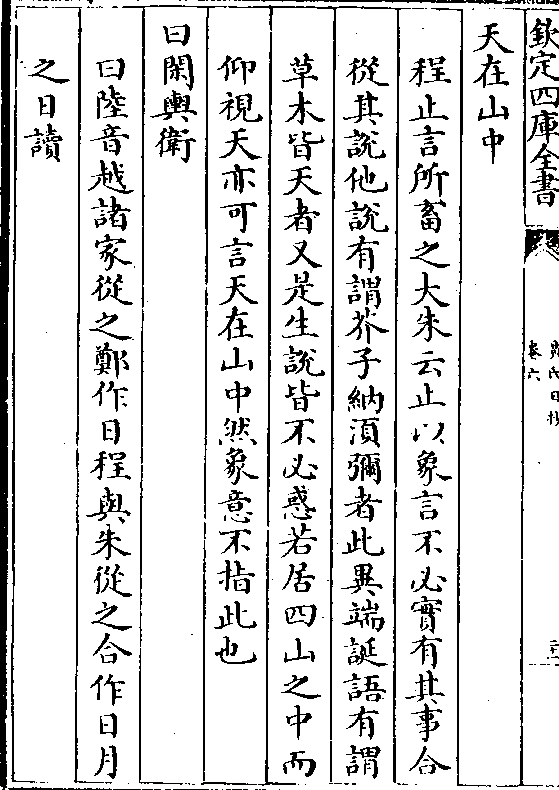 欽定四庫全書
黃氏日抄
卷六
天在山中
程止言所畜之大朱云止以象言不必實有其事合
從其說他說有謂芥子納湏彌者此異端誕語有謂
草木皆天者又是生說皆不必惑若居四山之中而
仰視天亦可言天在山中然象意不指此也
曰閑輿衛
曰陸音越諸家從之鄭作日程與朱從之合作日月
之日讀